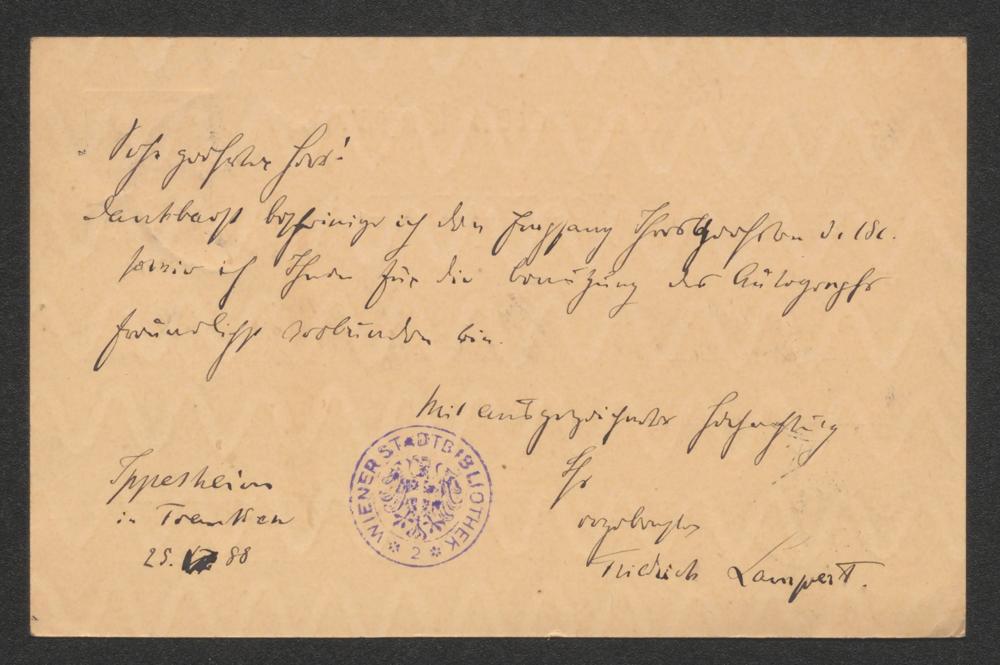 Sehr geehrter Herr!
Dankbarst bescheinige ich den Empfang Ihres Geehrten d. 18t.
sowie ich Ihnen für die Benützung des Autographs
freundlichst verbunden bin.
Mit ausgezeichneter Hochachtung
Ihr
ergebenster
Friedrich Lampert.
Ippesheim
in Franken
25. 88
WIENER STADTBIBLIOTHEK
* 2 *